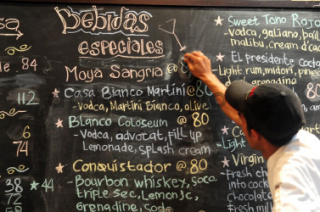 Bebidas
especiales
Moya Sangria @
Casa Blanco Martini @ 80
- Vodca, Martini Bianco, olive
Blanco Coloseum @ 80
- Vodca, advocat, fill up
Lemonade, splash cream
Conquistador @ 80
- Bourbon whiskey, soco
triple sec, Lemon jc,
Grenadine, Soda
84
112
6
74
38 44
74
Sweet Tano Rojo
- Vodca, galiano, bail
malibu, cream d'caca
El presidente Costa
Light rum, midori, pine
Light
Virgin
Fresh ch
into cock
Fresh
Fresh mil